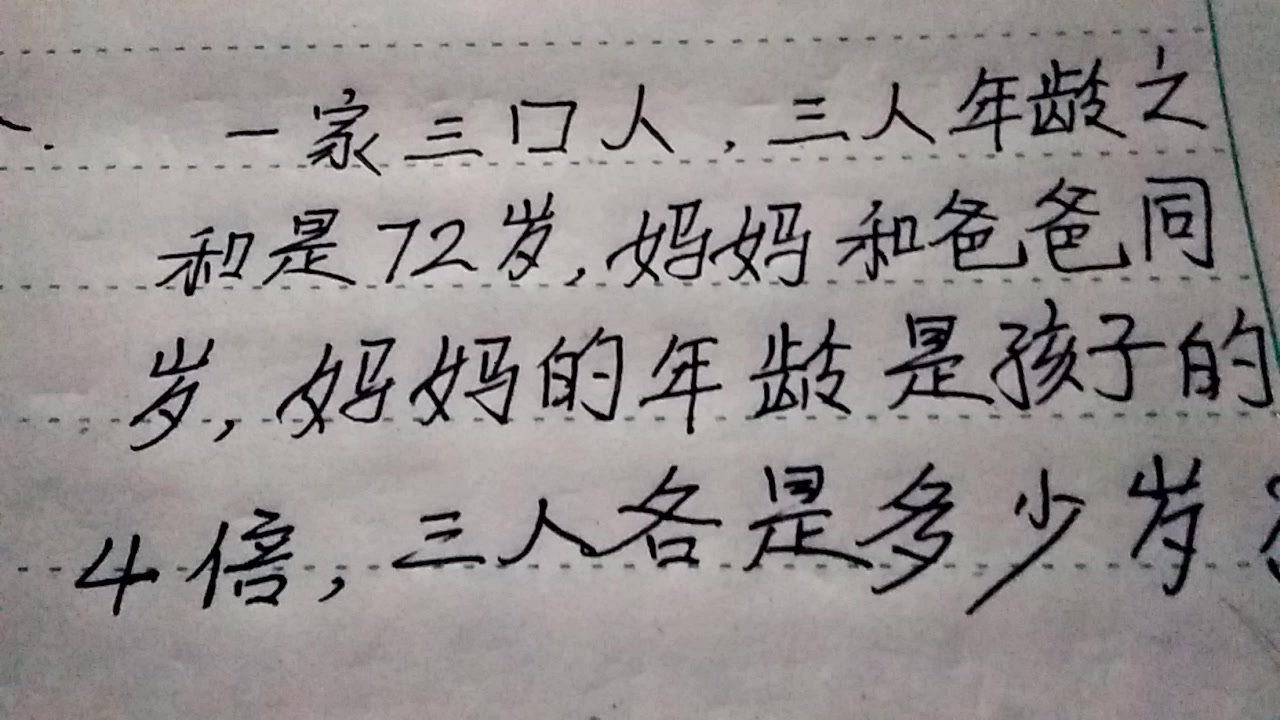 一家三口人,三人年龄之
和是72岁,妈妈和爸爸同
岁,妈妈的年龄是孩子的
4倍,三人各是多少岁?